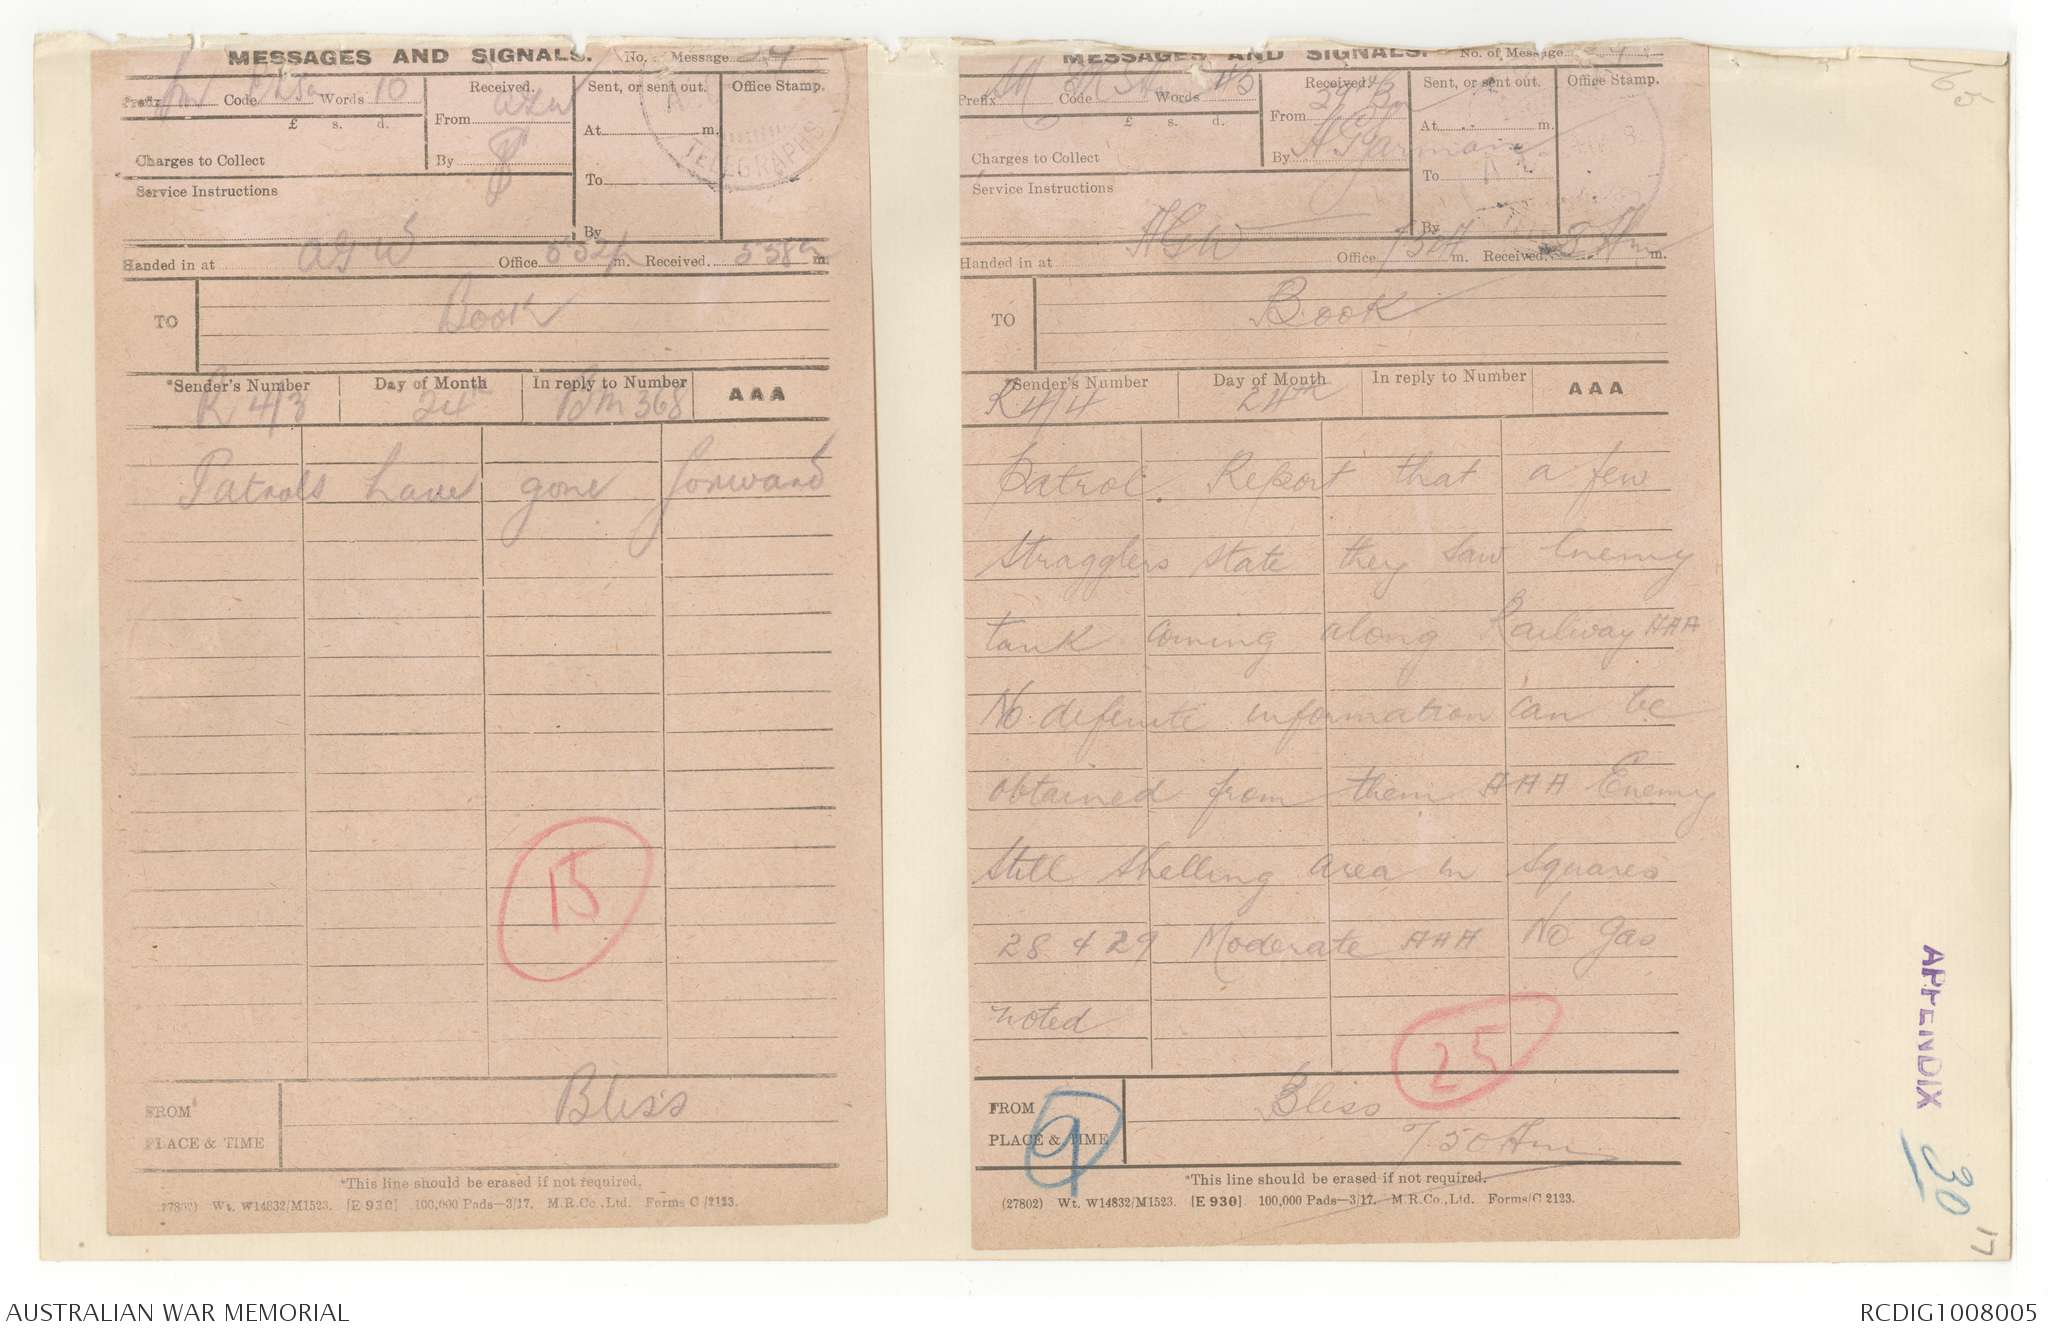 MESSAGES AND SIGNALS. No. Message
Prefix Code Words 10
£ s. d.
Charges to Collect
Service Instructions
Received.
From
By
Sent, or sent out.
At m.
To
By
Office Stamp.
TELEGRAPHS
Handed in at AGW Office 5 32 m. Received. 5 38 m.
TO Book
*Sender's Number Day of Month In reply to Number AAA
K 413 24th BM 368
Patrols have gone forward
15
FROM Bliss
PLACE & TIME
*This line should be erased if not required.
Wt. W14832/M1523. [E 930] 100,000 Pads—3/17. M.R.Co.,Ltd. Forms C/2123.
MESSAGES AND SIGNALS. No. of Message
Prefix SM Code Words
£ s. d.
Charges to Collect
Service Instructions
Received.
From 29 Bn
By
Sent, or sent out.
At m.
To
By
Office Stamp.
Handed in at AGW Office m. Received. 8 Am m.
TO Book
*Sender's Number Day of Month In reply to Number AAA
K414 24th
Patrol. Report that a few
stragglers state they saw Enemy
tank coming along Railway AAA
No definite information can be
obtained from them AAA Enemy
still shelling area in squares
28 & 29 Moderate AAA No gas
noted
25
FROM Bliss
PLACE & TIME 7 50 Am
9
*This line should be erased if not required.
(27802) Wt. W14832/M1523. [E 930] 100,000 Pads—3/17. M.R.Co.,Ltd. Forms/C 2123.
APPENDIX 30
17
AUSTRALIAN WAR MEMORIAL
RCDIG1008005